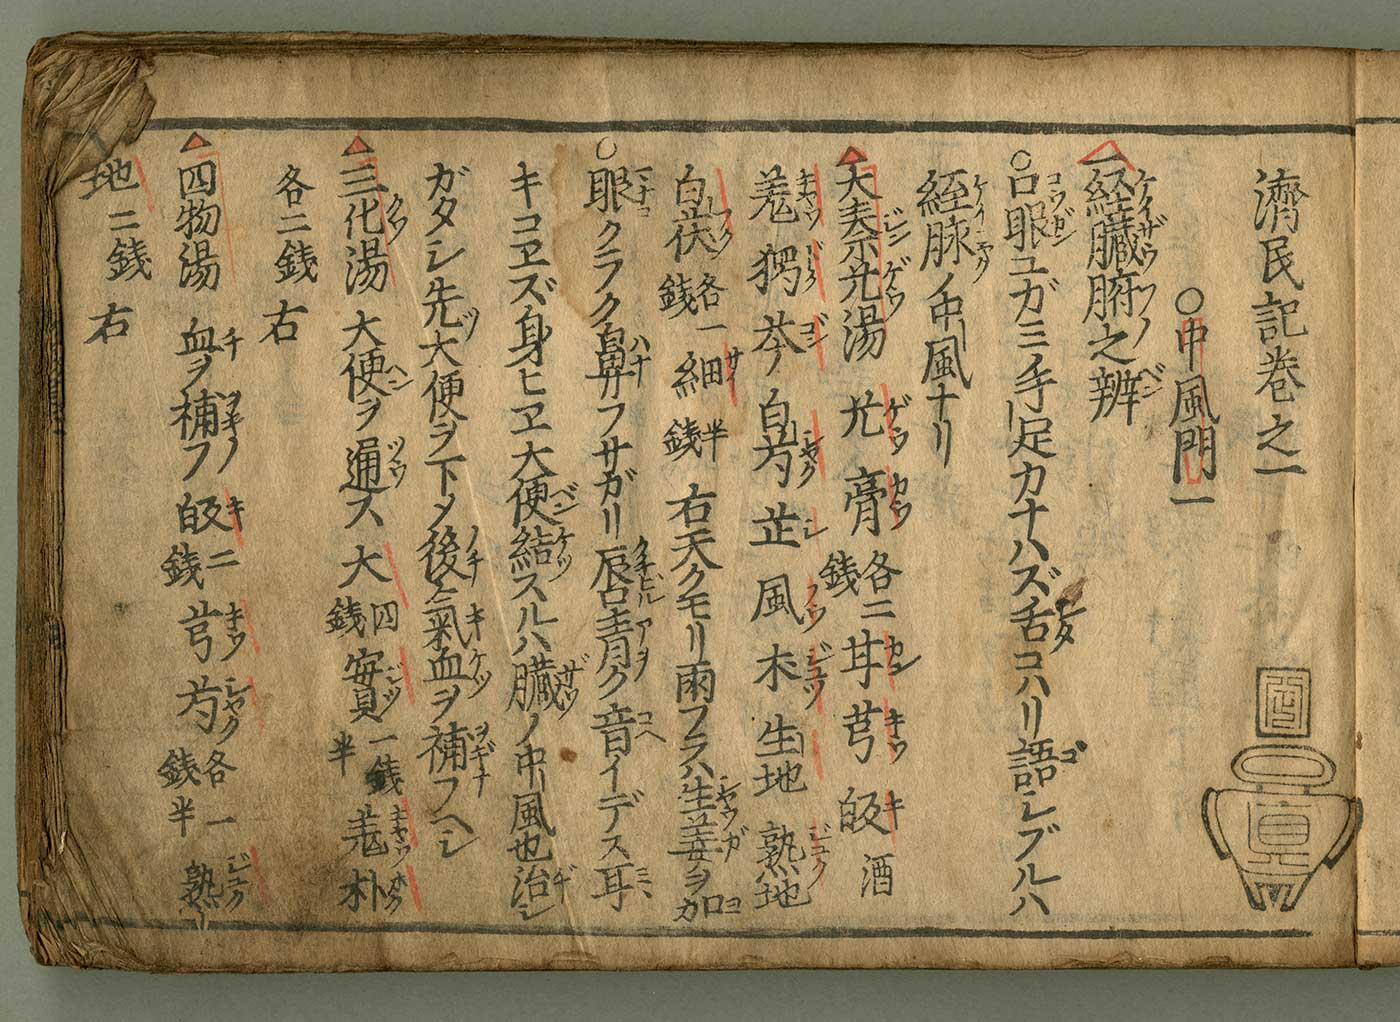 濟民記巻之一
○中風門一
一経臓腑之辨
○口眼ユガミ手足カナハズ舌コハリ語シブルハ
經脉ノ中風ナリ
大秦艽湯 艽 膏 各二銭 甘 芎 皈 酒
羌 獨 芩 白芍 芷 風 朮 生地 熟地
白茯 各一銭 細 半銭 右天クモリ雨フラハ生姜ヲ加
○眼クラク鼻フサガリ唇青ク音イデス耳
キコヱズ身ヒヱ大便結スルハ臓ノ中風也治シ
ガタシ先大便ヲ下メ後ニ氣血ヲ補フヘシ
三化湯 大便ヲ通ス 大 四銭 實 一銭半 羌 朴
各二銭 右
四物湯 血ヲ補フ 皈 二銭 芎 芍 各一銭半 熟
地 二銭 右